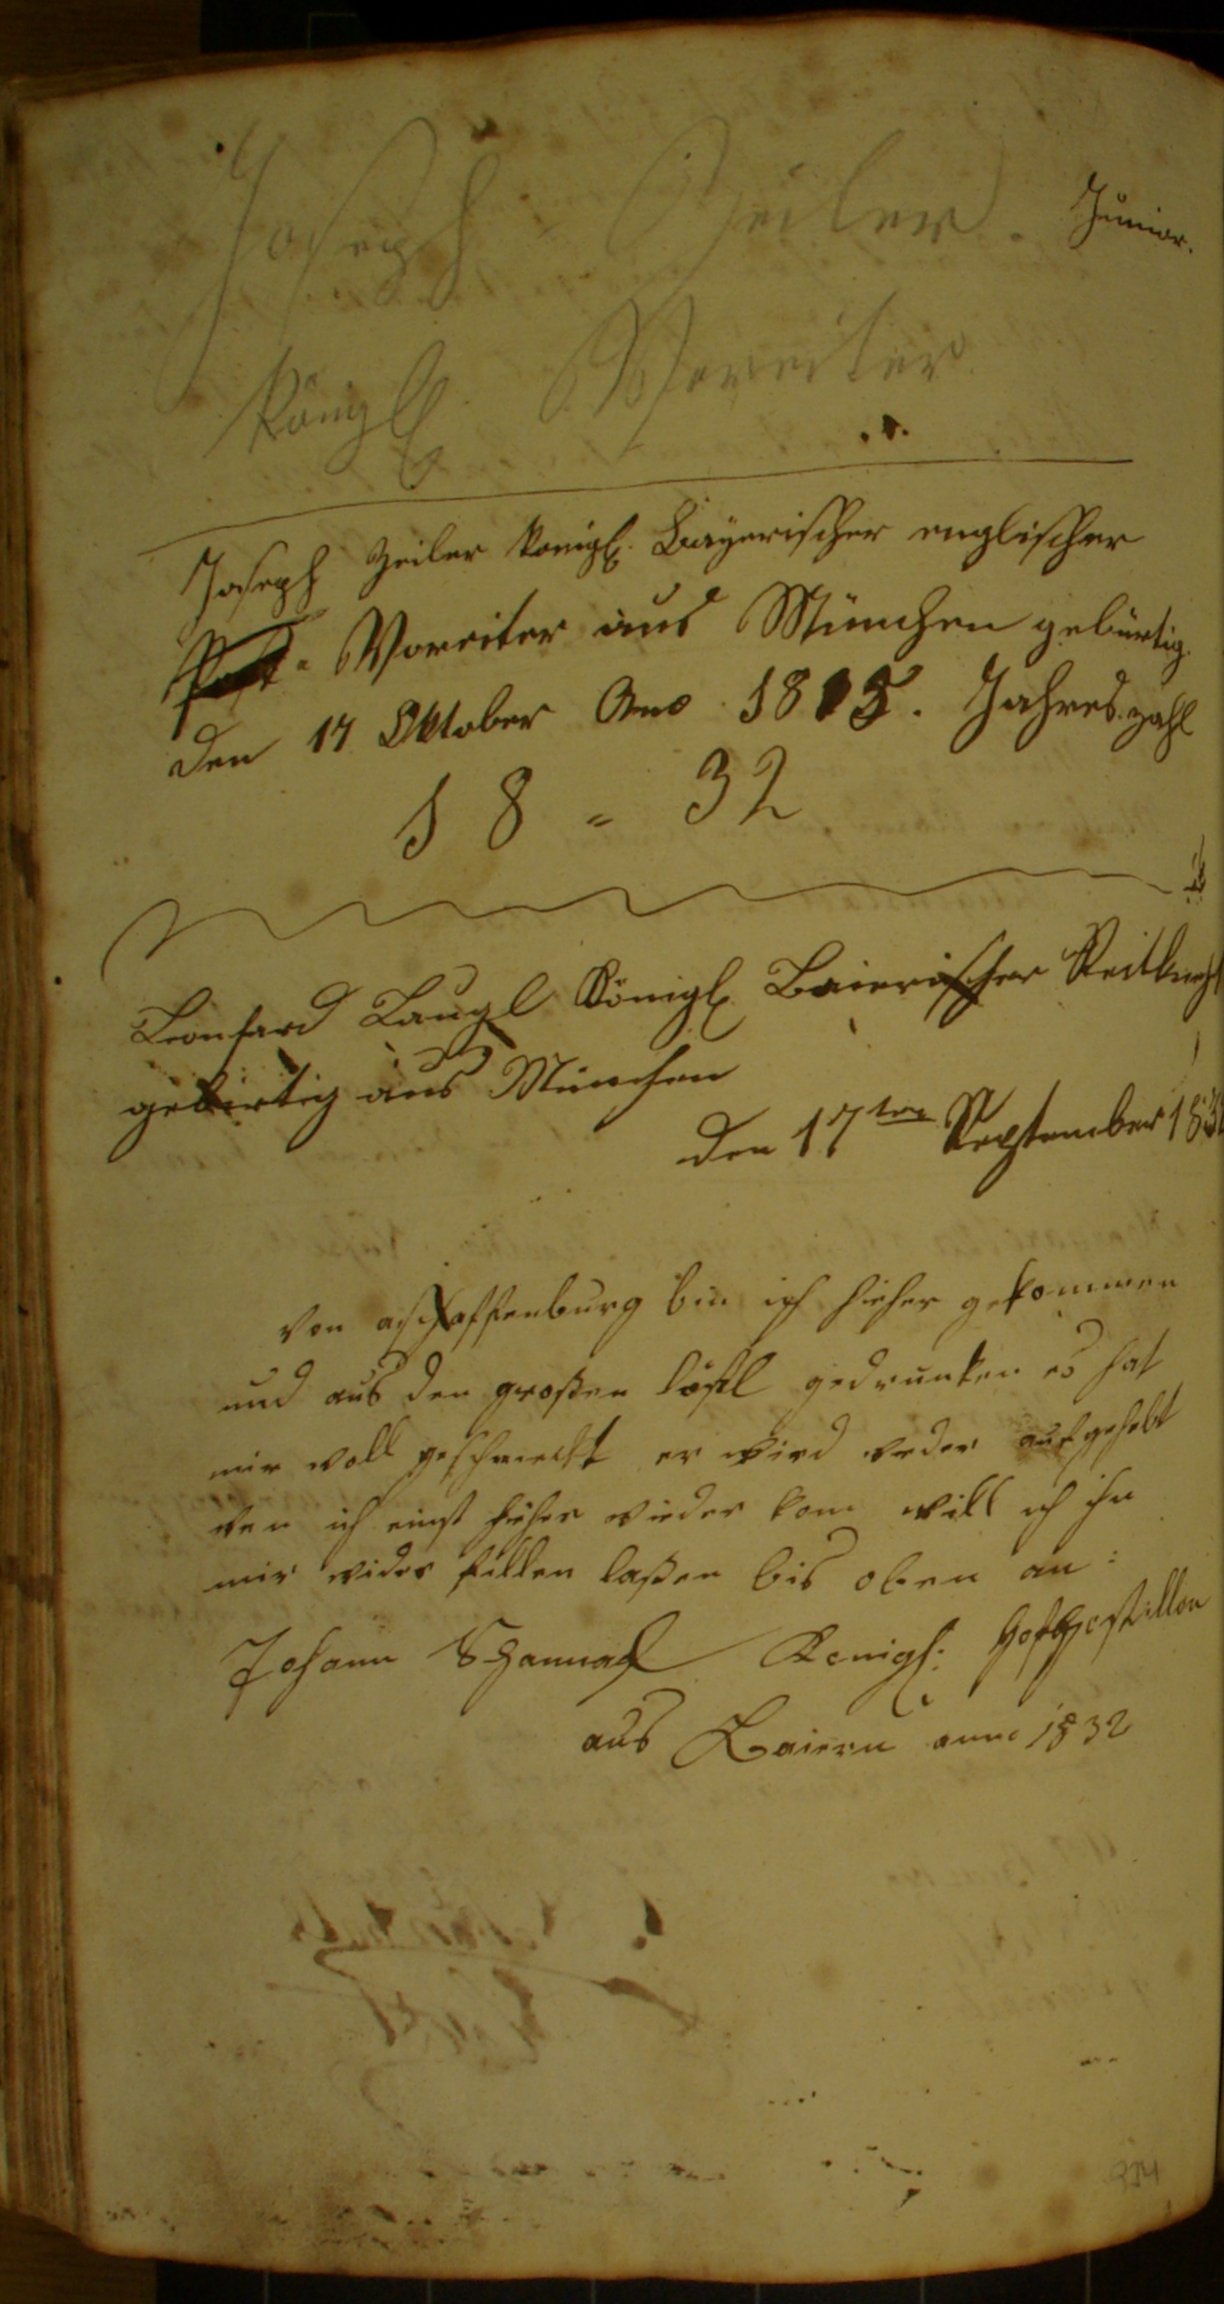 Joseph Zeiler. Junior.
Königl Voreiter
Joseph Zeiler königl. Bayerischer englischer
Post- Voreiter aus München gebürtig.
den 17 Oktober Ano 1815. Jahreszahl
18 = 32
Leonhard Laugl Königl Baierischer Reitknecht
gebirtig aus München
den 17ten September 183
Von aschaffenburg bin ich hieher gekommen
und aus den großen löffl gedrunken es hat
mir woll geschmeckt er wird weder aufgehebt
wen ich einst hieher wieder kom will ich ihn
mir wider fillen laßen bis oben an:
Johann Königl: Hofpostillon
aus Baiern anno 1832